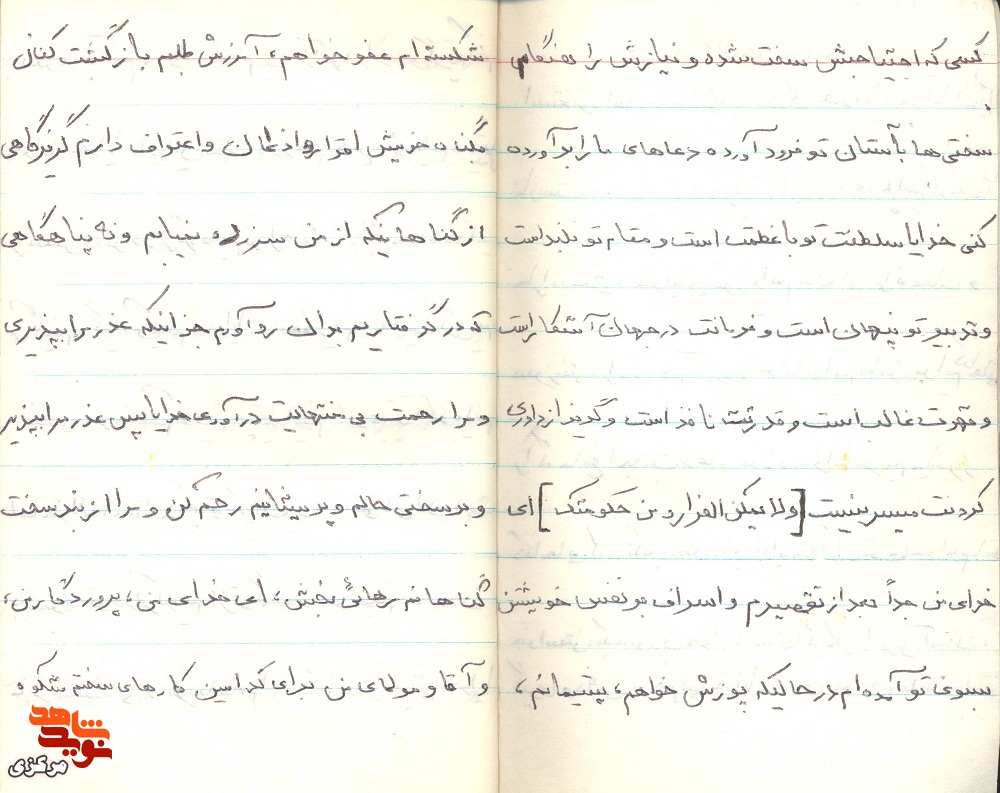 کسی که احتیاجش سخت شده و نیازش را هنگام
سختی‌ها بآستان تو فرود آورده دعاهای ما را برآورده
کنی خدایا سلطنت تو با عظمت است و مقام تو بلند است
و تدبیر تو پنهان است و فرمانت در جهان آشکار است
و قهرت غالب است و قدرتت نافذ است و گریز از داوری
کردنت میسر نیست [ولا یمکن الفرار من حکومتک] ای
خدای من جداً بعد از تقصیرم و اسراف بر نفس خویشتن
بسوی تو آمده‌ام در حالیکه پوزش خواهم، پشیمانم،
شکسته‌ام عفو خواهم، آمرزش طلبم بازگشت کنان
بگناه خویش اقرار و اذعان و اعتراف دارم گریزگاهی
از گناهانیکه از من سرزده نمیابم و نه پناهگاهی
که در گرفتاریم بدان رو آورم جز اینکه عذر مرا بپذیری
و مرا رحمت بی منتهایت در آوری خدایا پس عذر مرا بپذیر
و بر سختی حالم و پریشانیم رحم کن و مرا از بند سخت
گناهانم رهائی بخش، ای خدای من، پروردگار من،
و آقا و مولای من برای کدامین کارهای سختم شکوه
نوید شاهد
مرکزی